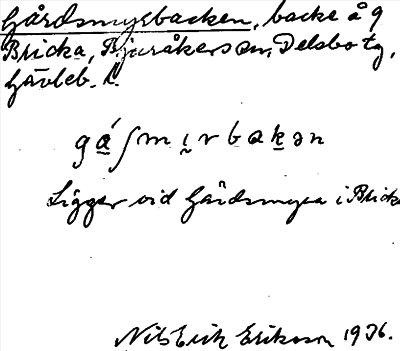 Gårdsmyrbacken, backe å g
Bricka, Bjuråkers sn, Delsbo tg,
Gävleb. l.
gá̱ʃmi̱rbaḵən
Ligger vid Gårdsmyra i Bricka
Nils Erik Eriksson 1936.